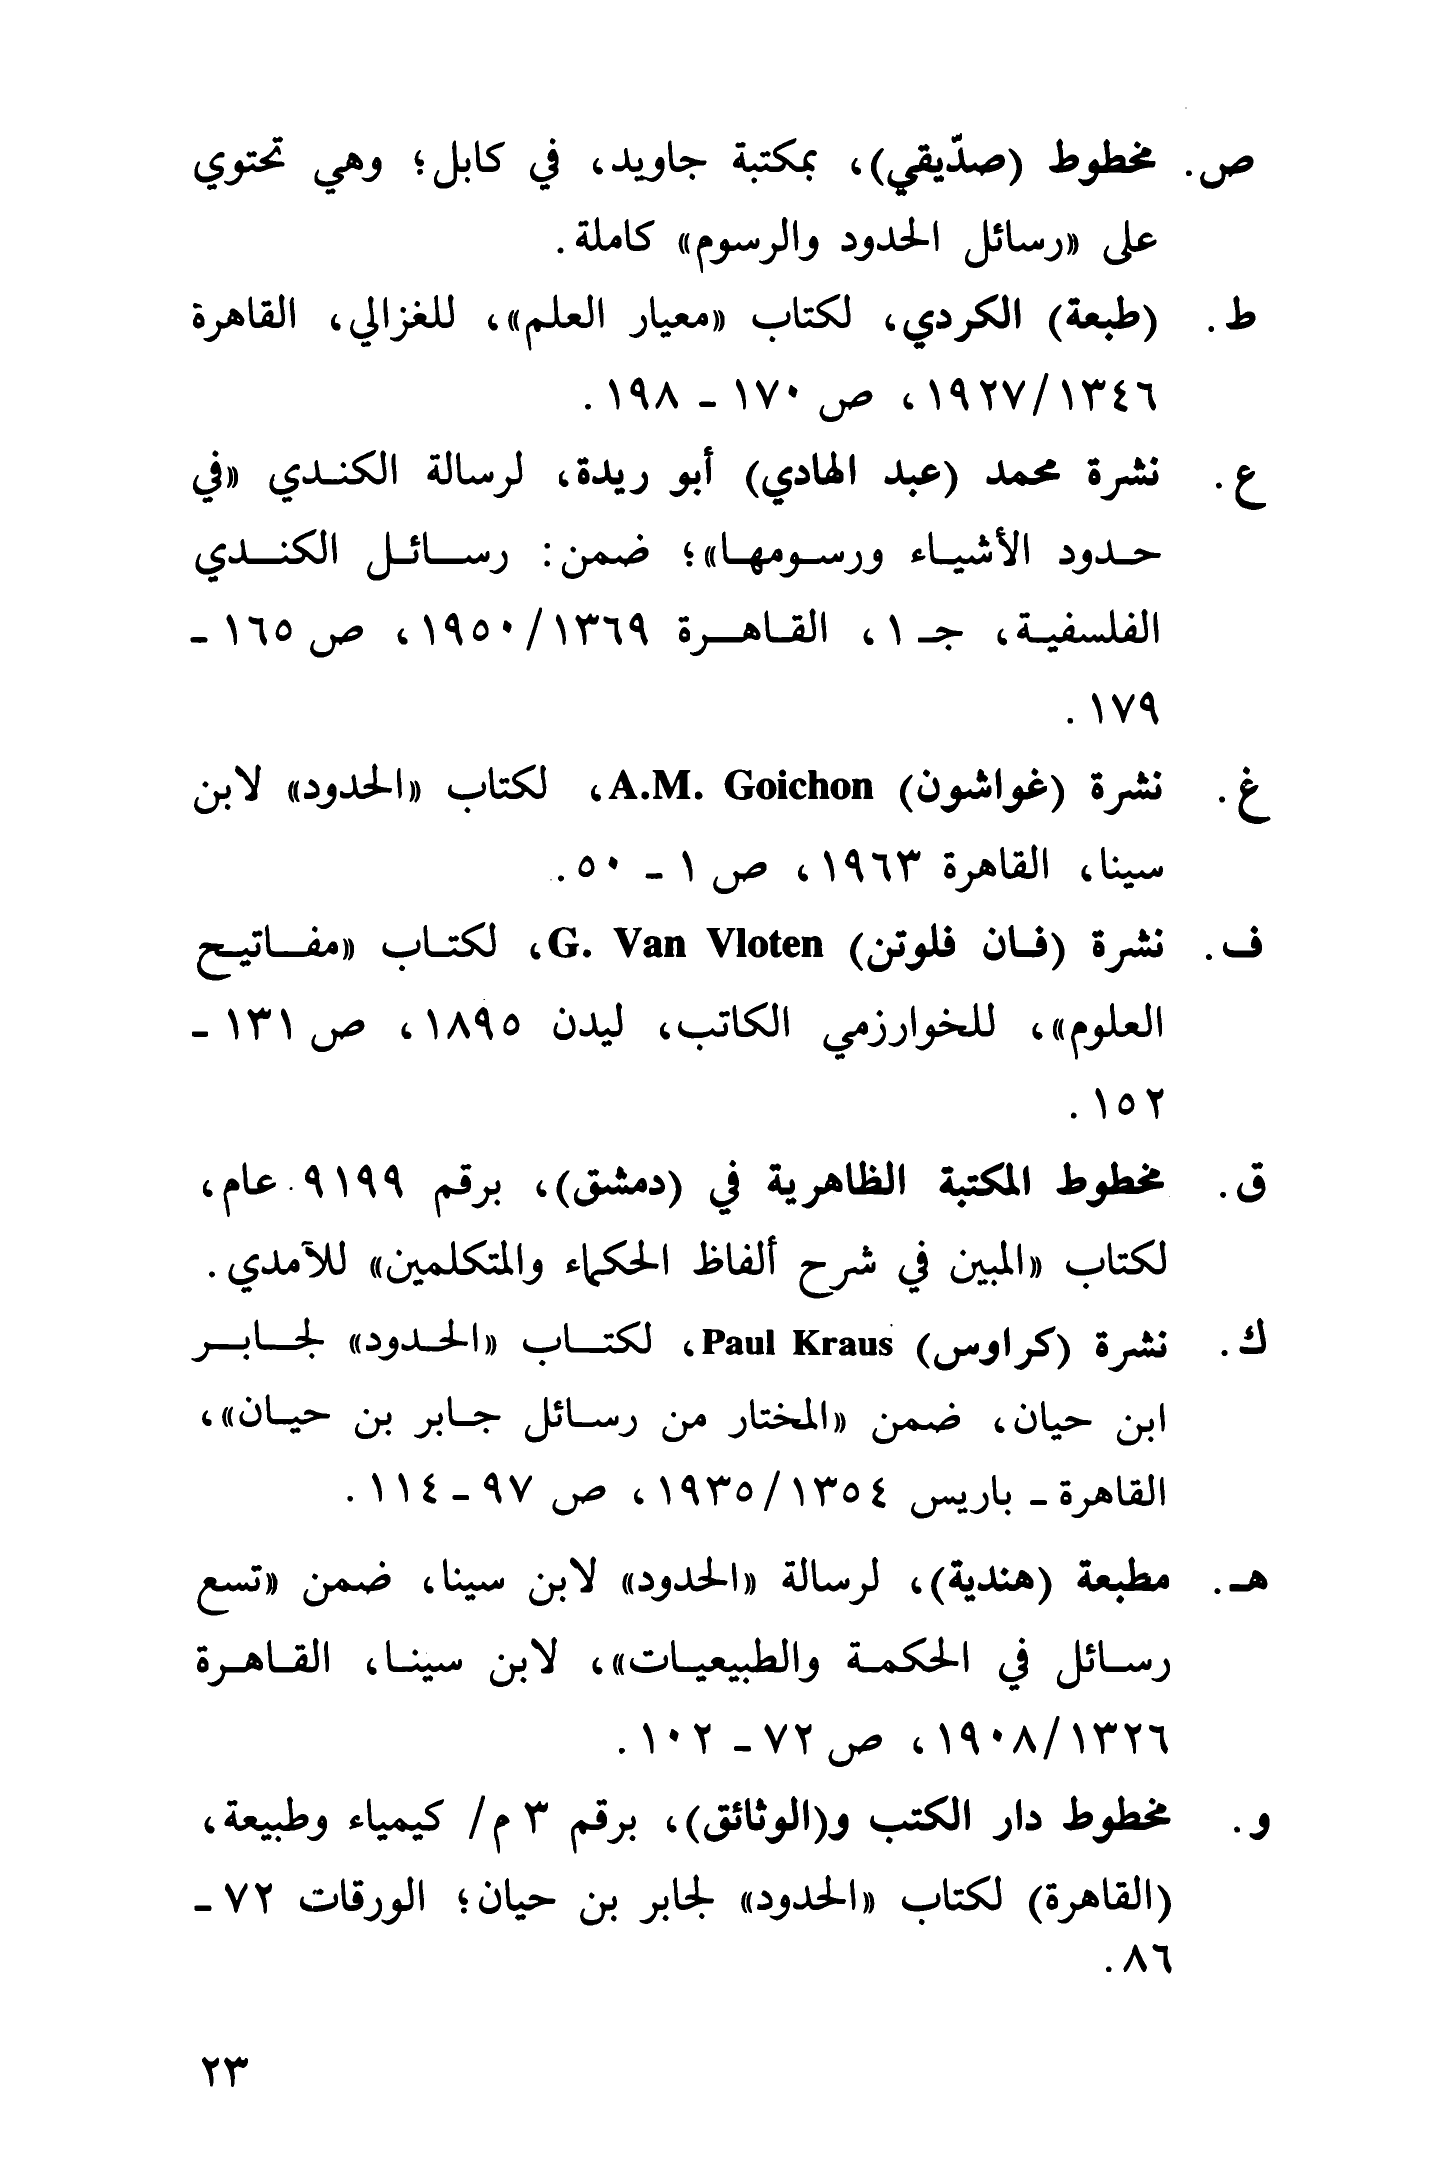 ص. مخطوط (صدّيقي)، بمكتبة جاويد، في كابل؛ وهي تحتوي
على «رسائل الحدود والرسوم» كاملة.
ط. (طبعة) الكردي، لكتاب «معيار العلم»، للغزالي، القاهرة
١٩٢٧/١٣٤٦، ص ١٧٠ - ١٩٨.
ع. نشرة محمد (عبد الهادي) أبو ريدة، لرسالة الكندي «في
حدود الأشياء ورسومها»؛ ضمن: رسائل الكندي
الفلسفية، جـ ١، القاهرة ١٩٥٠/١٣٦٩، ص ١٦٥ -
١٧٩.
غ. نشرة (غواشون) A.M. Goichon، لكتاب «الحدود» لابن
سينا، القاهرة ١٩٦٣، ص ١ - ٥٠.
ف. نشرة (فان فلوتن) G. Van Vloten، لكتاب «مفاتيح
العلوم»، للخوارزمي الكاتب، ليدن ١٨٩٥، ص ١٣١ -
١٥٢.
ق. مخطوط المكتبة الظاهرية في (دمشق)، برقم ٩١٩٩ عام،
لكتاب «المبين في شرح ألفاظ الحكماء والمتكلمين» للآمدي.
ك. نشرة (كراوس) Paul Kraus، لكتاب «الحدود» لجابر
ابن حيان، ضمن «المختار من رسائل جابر بن حيان»،
القاهرة - باريس ١٩٣٥/١٣٥٤، ص ٩٧ - ١١٤.
هـ. مطبعة (هندية)، لرسالة «الحدود» لابن سينا، ضمن «تسع
رسائل في الحكمة والطبيعيات»، لابن سينا، القاهرة
١٩٠٨/١٣٢٦، ص ٧٢ - ١٠٢.
و. مخطوط دار الكتب و(الوثائق)، برقم ٣ م/ كيمياء وطبيعة،
(القاهرة) لكتاب «الحدود» لجابر بن حيان؛ الورقات ٧٢ -
٨٦.
٢٣